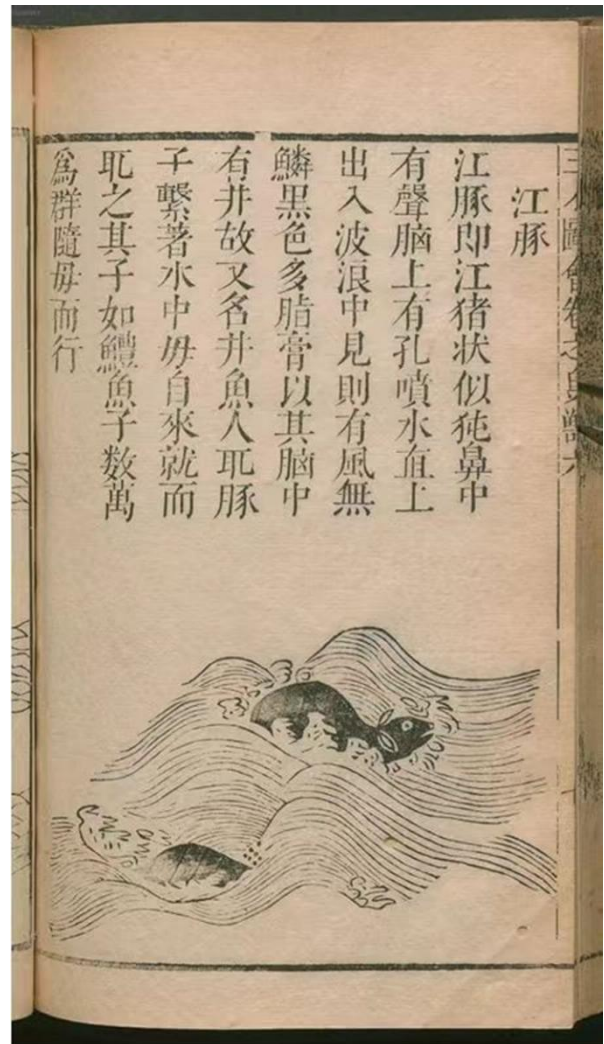 三才圖會卷之鳥獸六
江豚
江豚即江猪状似㹠鼻中
有聲脑上有孔噴水直上
出入波浪中見則有風無
鱗黑色多脂膏以其脑中
有井故又名井魚人取豚
子繫著水中毋自來就而
取之其子如鱧魚子数萬
爲群隨毋而行